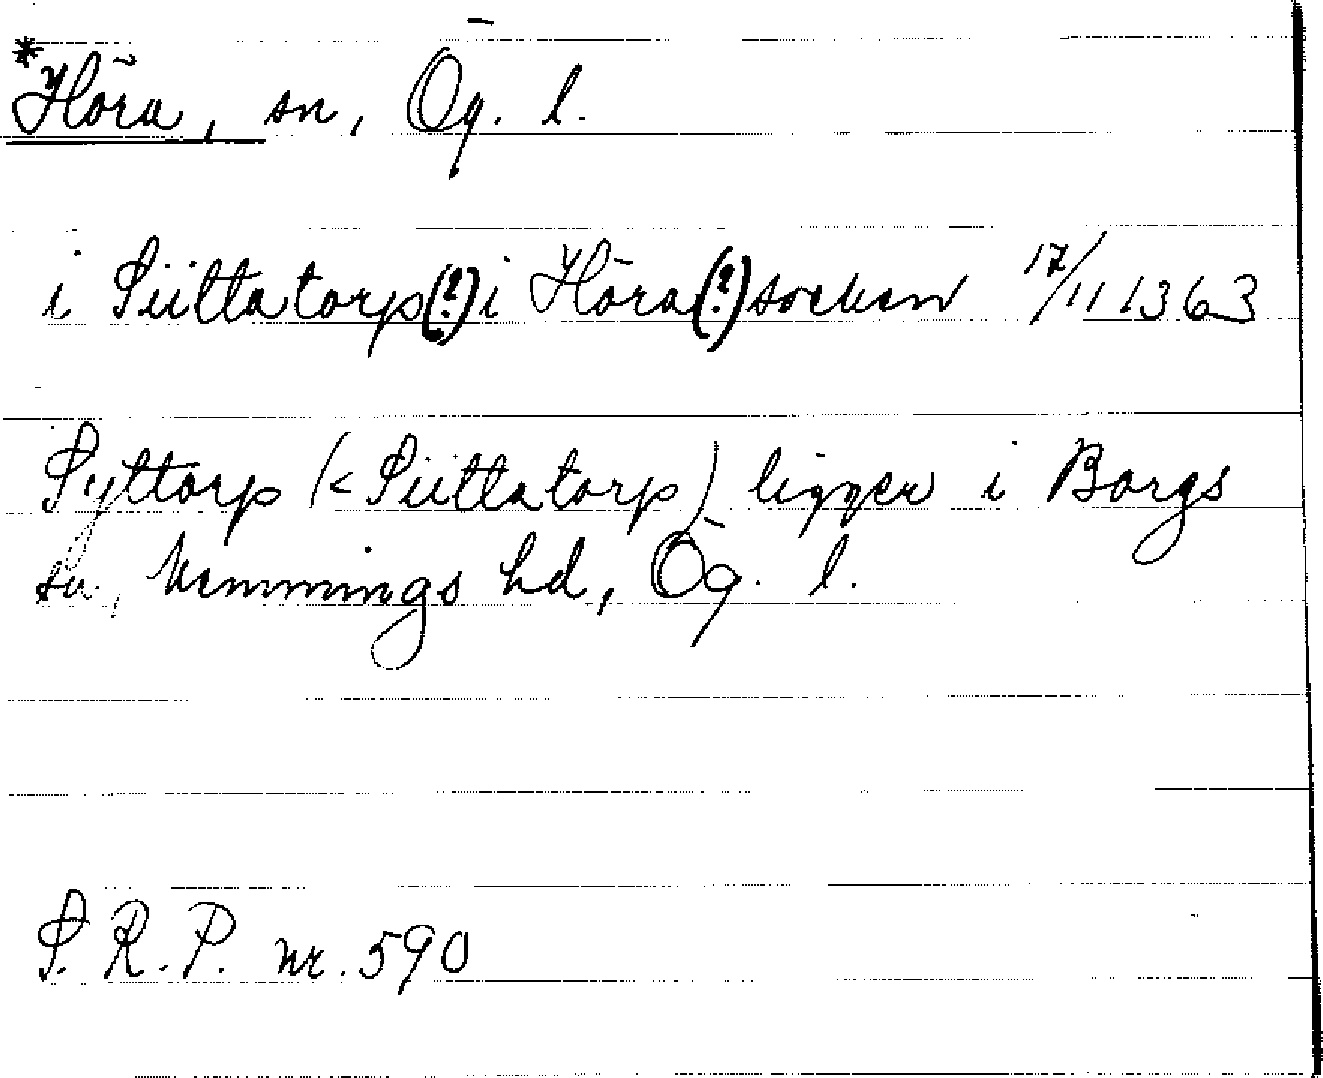 *Höra, sn, Ög. l.
i Siittatorp(?) i Höra(?) socken 17/11 1363
Syttorp (< Siittatorp) ligger i Borgs
sn, Memmings hd, Ög. l.
S. R. P. nr. 590